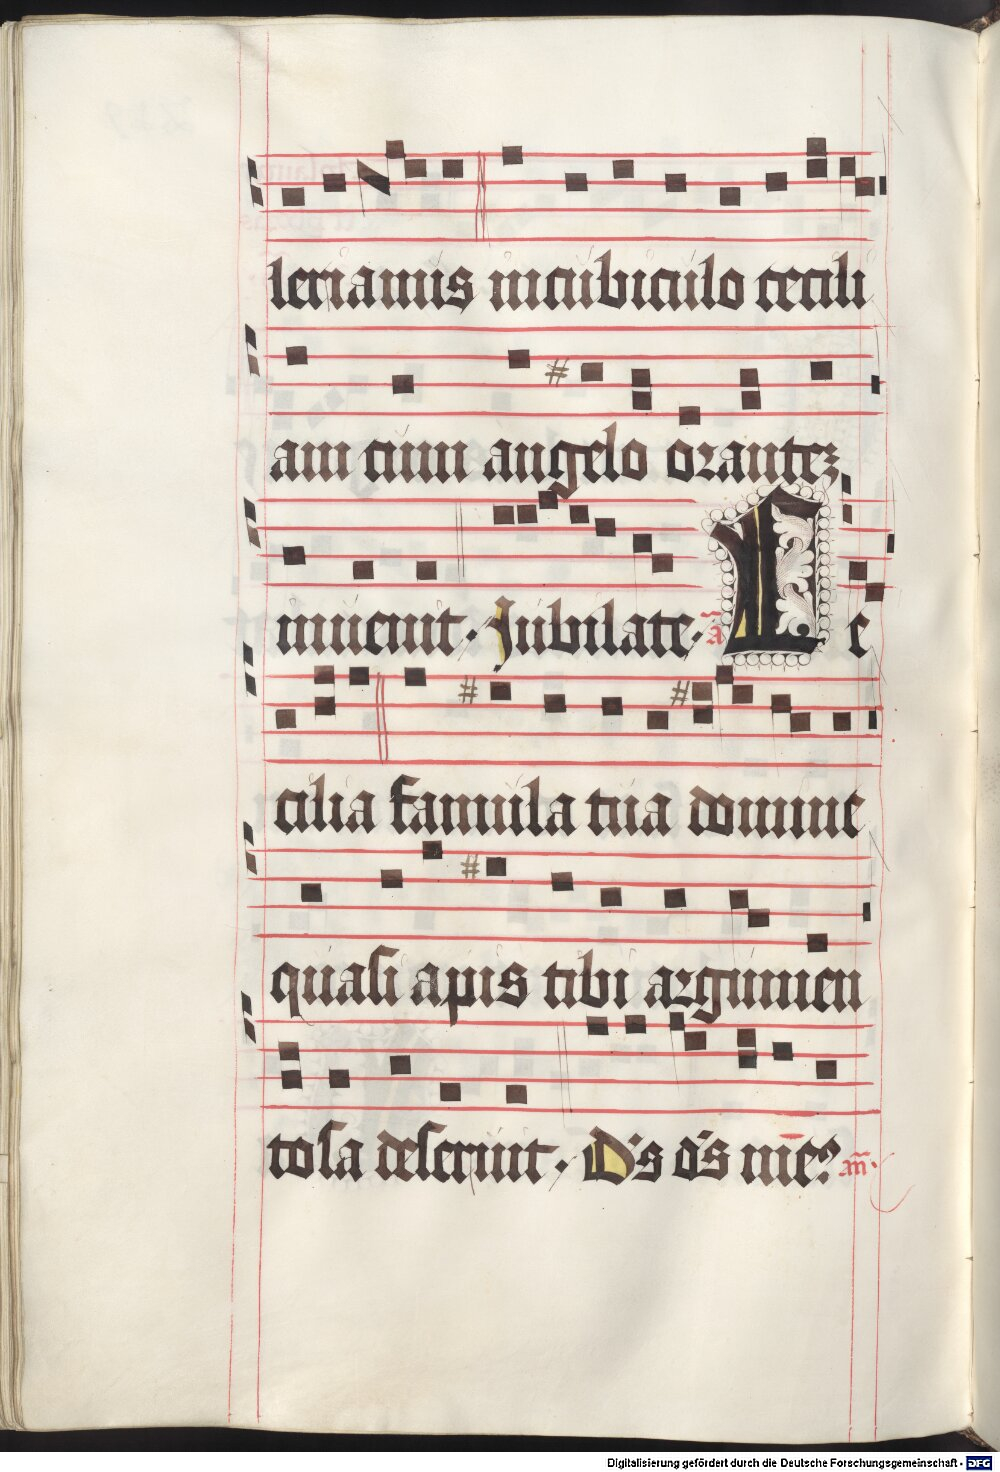 lerianus in cubiculo cecili
am cum angelo orantez
inuenit · Jubilate · a L e
cilia famula tua domine
quasi apis tibi argumen
tosa deseruit · D's d's me? an·
Digitalisierung gefördert durch die Deutsche Forschungsgemeinschaft - DFG